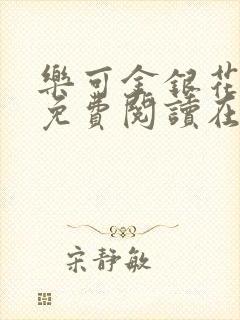 樂可金銀花
免費閱讀在
宋靜敏